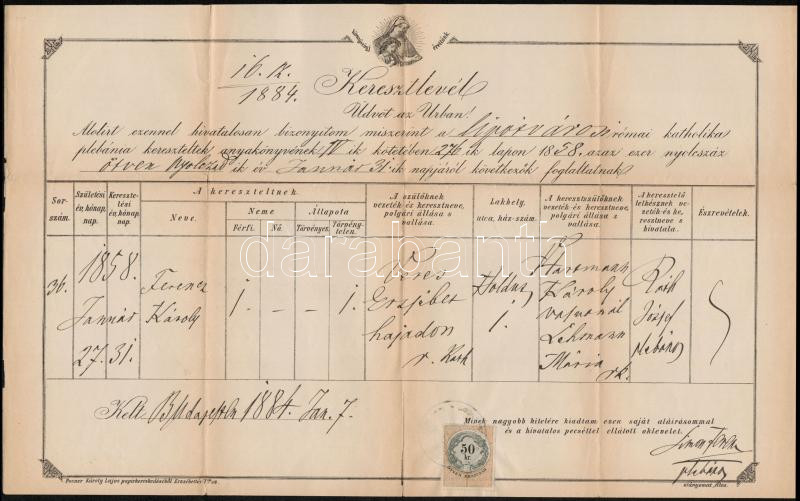 könyörögj érettünk
16. sz.
1884.
Keresztlevél
Üdvöt az Urban!
Alolirt ezennel hivatalosan bizonyitom miszerint a Lipótvárosi római katholika
plebánia kereszteltek anyakönyvének IV ik kötetében 276 ik lapon 1858. azaz ezer nyolcszáz
ötven nyolczad ik év Január 31. ik napjáról következők foglaltatnak
Sor-szám. Születési év, hónap, nap. Keresztelési év, hónap, nap. A kereszteltnek. A szülőknek vezeték és keresztneve, polgári állása s vallása. Lakhely, utca, ház-szám. A keresztszülőknek vezeték és keresztneve, polgári állása s vallása. A keresztelő lelkésznek vezeték és keresztneve s hivatala. Észrevételek.
Neve. Neme Állapota
Férfi. Nő. Törvényes. Törvénytelen.
36. 1858. Január 27. 31. Ferencz Károly 1. – – 1. Veres Erzsébet hajadon r. Kath Holdut, 1. Hartmann Károly Lehmann Mária rk. Ráth József plebános
Kelt Budapesten 1884. Jan. 7.
Minek nagyobb hitelére kiadtam ezen saját aláirásommal
és a hivatalos pecséttel ellátott oklevelet.
50
kr.
plebános
Posner Károly Lajos papirkereskedéséből Erzsébettér
darabanth